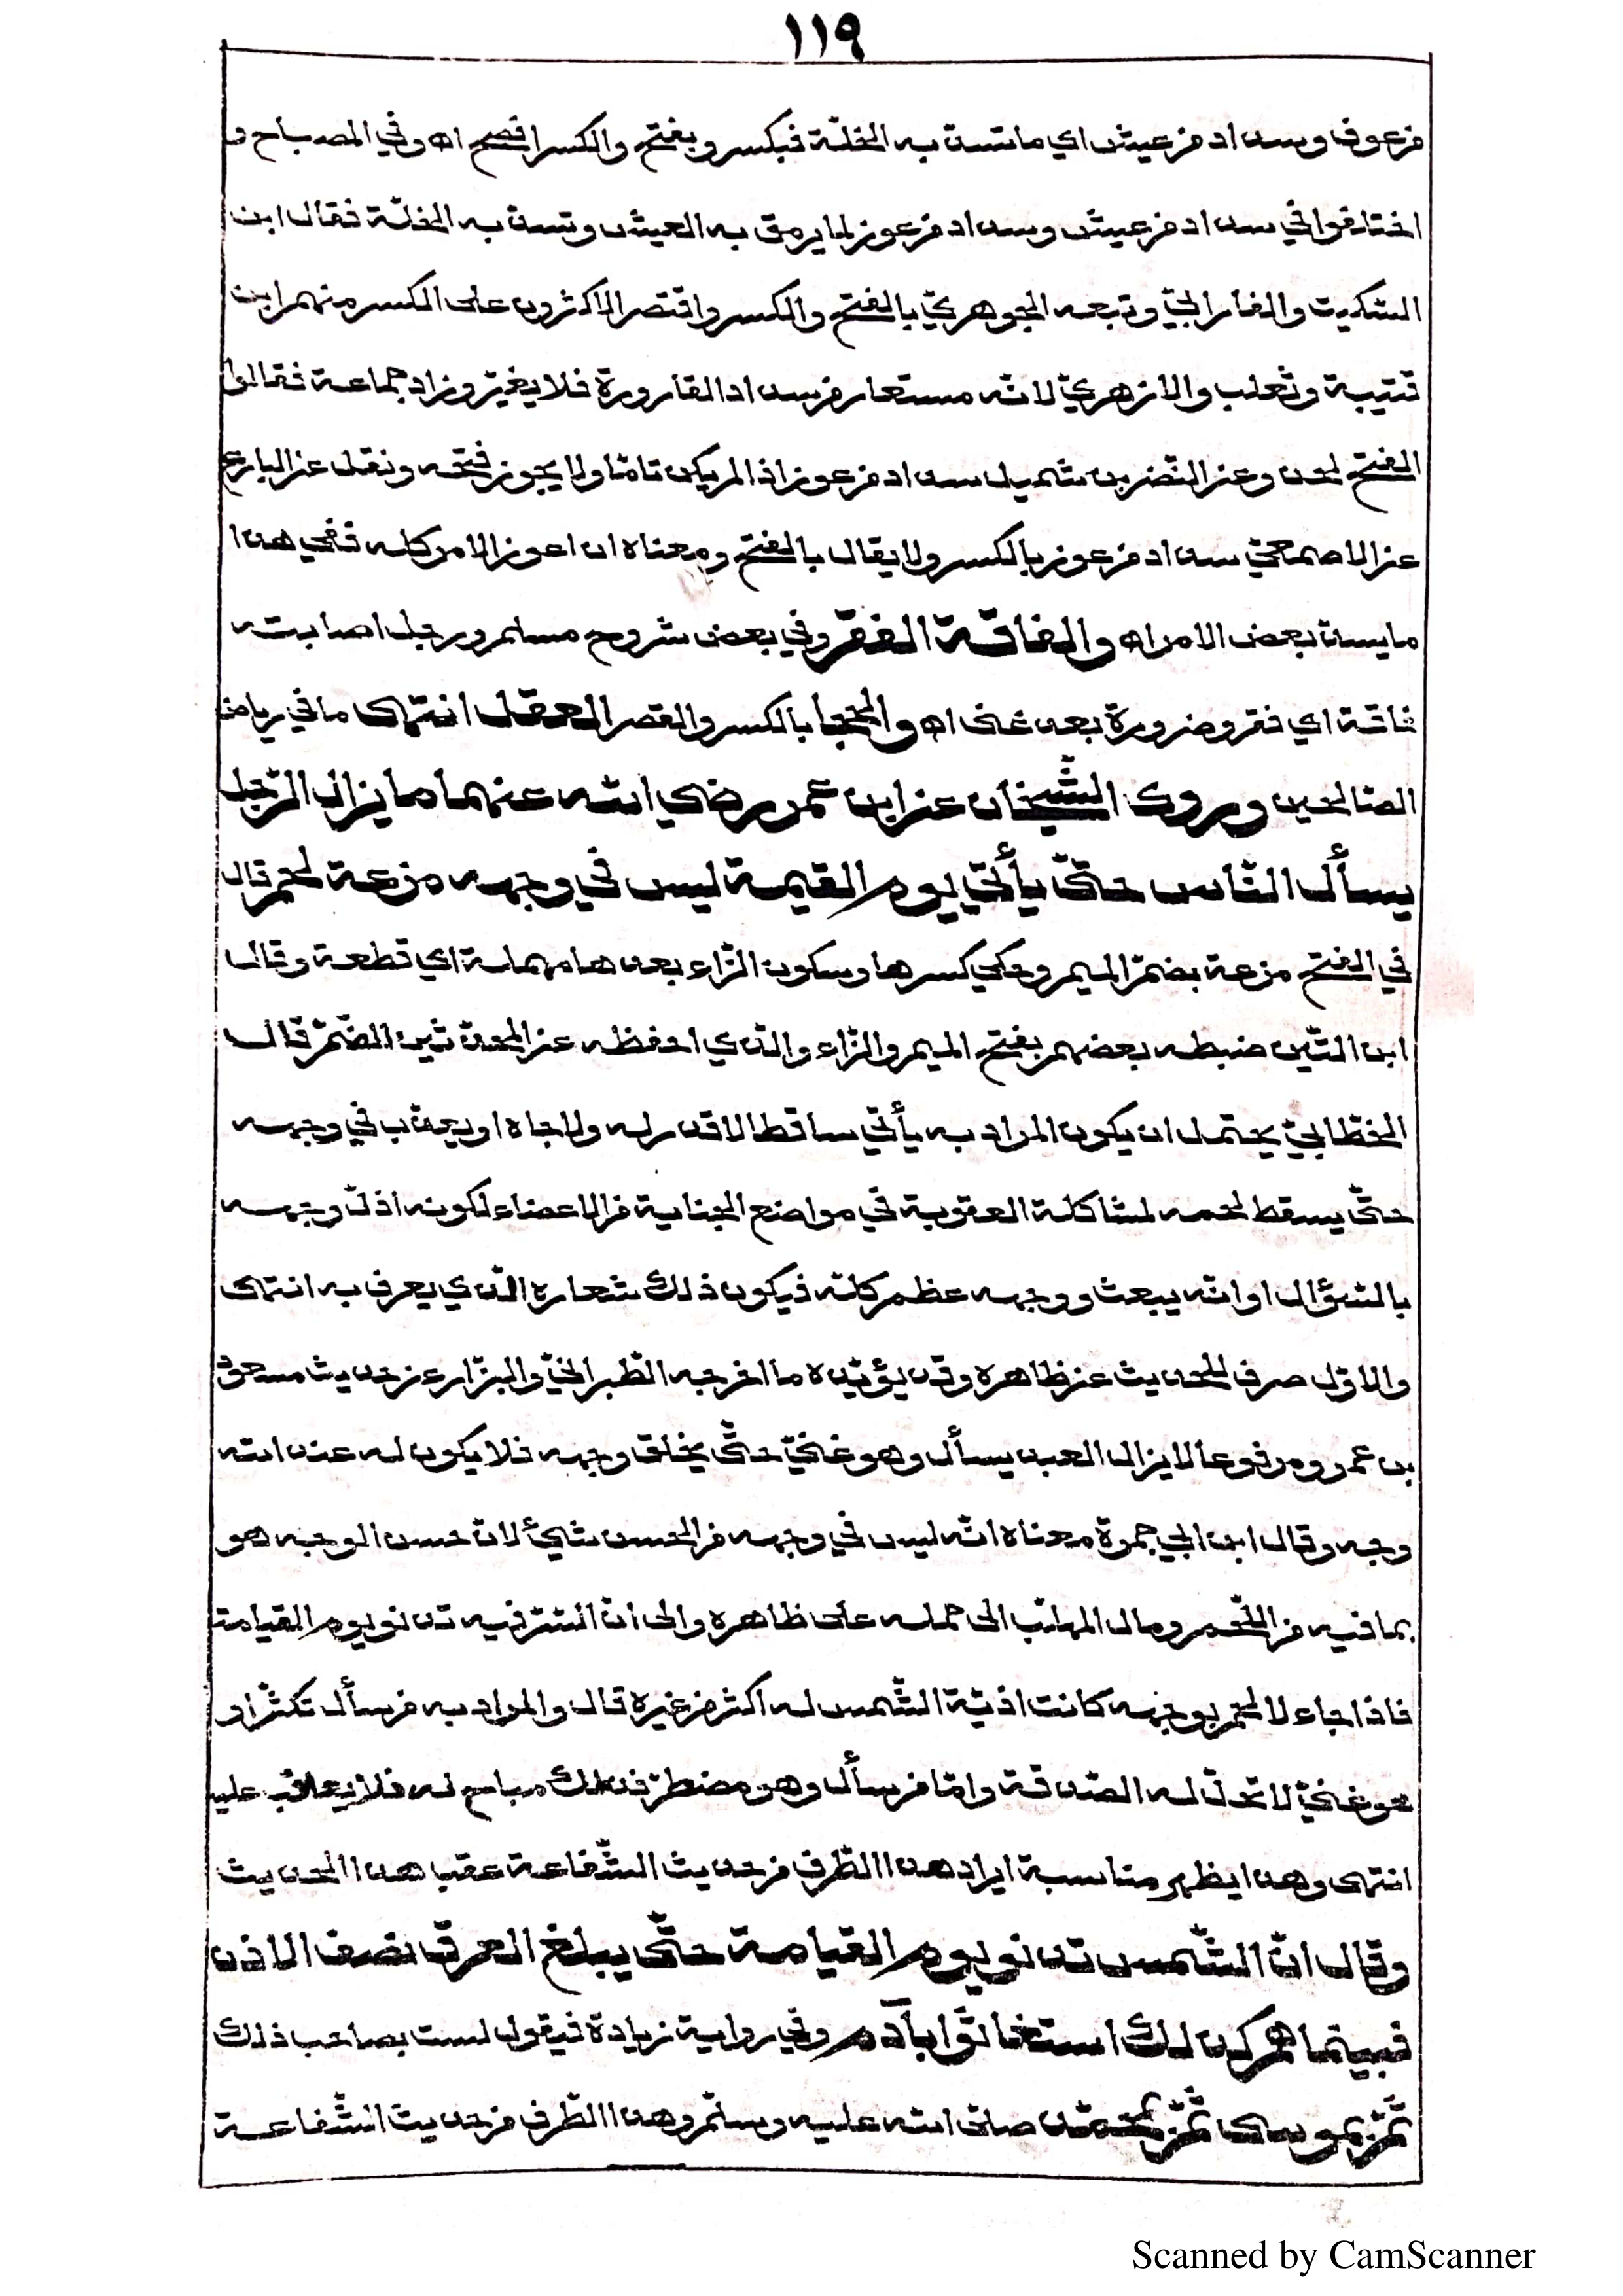 ١١٩
من عوز وسداد من عيش اي ما تسد به الخلّة فيكسر ويفتح والكسر افصح اه وفي المصباح و
اختلفوا في سداد من عيش وسداد من عوز لما يرمق به العيش وتسد به الخلّة فقال ابن
السّكيت والفارابيّ وتبعه الجوهريّ بالفتح والكسر واقتصر الاكثرون على الكسر منهم ابن
قتيبة وثعلب والازهريّ لانّه مستعار من سداد القارورة فلا يغيّر وزاد جماعة فقالوا
الفتح لحن وعن النّضر بن شميل سداد من عوز اذا لم يكن تامّا ولا يجوز فتحه ونقل عن البارع
عن الاصمعيّ سداد من عوز بالكسر ولا يقال بالفتح ومعناه ان اعوز الامر كله ففي هذا
ما يسدّ بعض الامر اه والفاقة الفقر وفي بعض شروح مسلم ورجل اصابته
فاقة اي فقر وضرورة بعد غنى اه والحجا بالكسر والقصر العقل انتهى ما في رياض
الصّالحين وروى الشّيخان عن ابن عمر رضي الله عنهما ما يزال الرّجل
يسأل النّاس حتّى يأتي يوم القيمة ليس في وجهه مزعة لحم قال
في الفتح مزعة بضمّ الميم وحكي كسرها وسكون الزّاء بعدها مهملة اي قطعة وقال
ابن التّين ضبطه بعضهم بفتح الميم والزّاء والّذي احفظه عن المحدّثين الضّمّ قال
الخطّابيّ يحتمل ان يكون المراد به يأتي ساقطا لا قدر له ولا جاه او يعذّب في وجهه
حتّى يسقط لحمه لمشاكلة العقوبة في مواضع الجناية من الاعضاء لكونه اذلّ وجهه
بالسّؤال او انّه يبعث ووجهه عظم كلّه فيكون ذلك شعاره الّذي يعرف به انتهى
والاوّل صرف للحديث عن ظاهره وقد يؤيّده ما اخرجه الطّبرانيّ والبزّار من حديث مسعود
بن عمرو مرفوعا لا يزال العبد يسأل وهو غنيّ حتّى يخلق وجهه فلا يكون له عند الله
وجه وقال ابن ابي جمرة معناه انّه ليس في وجهه من الحسن شيئ لانّ حسن الوجه هو
بما فيه من اللّحم ومال المهلّب الى حمله على ظاهره والى انّ السّرّ فيه تدنو يوم القيامة
فاذا جاء لا لحم بوجهه كانت اذيّة الشّمس له اكثر من غيره قال والمراد به من سأل تكثّرا و
هو غنيّ لا تحلّ له الصّدقة وامّا من سأل وهو مضطرّ فذلك مباح له فلا يعاقب عليه
انتهى وهذا يظهر مناسبة ايراد هذا الطّرف من حديث الشّفاعة عقب هذا الحديث
وقال انّ الشّمس تدنو يوم القيامة حتّى يبلغ العرق نصف الاذن
فبينما هم كذلك استغاثوا بآدم وفي رواية زيادة فيقول لست بصاحب ذلك
ثمّ بموسى ثمّ بمحمّد صلّى الله عليه وسلّم وهذا الطّرف من حديث الشّفاعة
Scanned by CamScanner